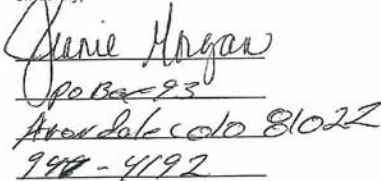 Janie Morgan
PO Box 93
Avondale colo 81022
948-4192